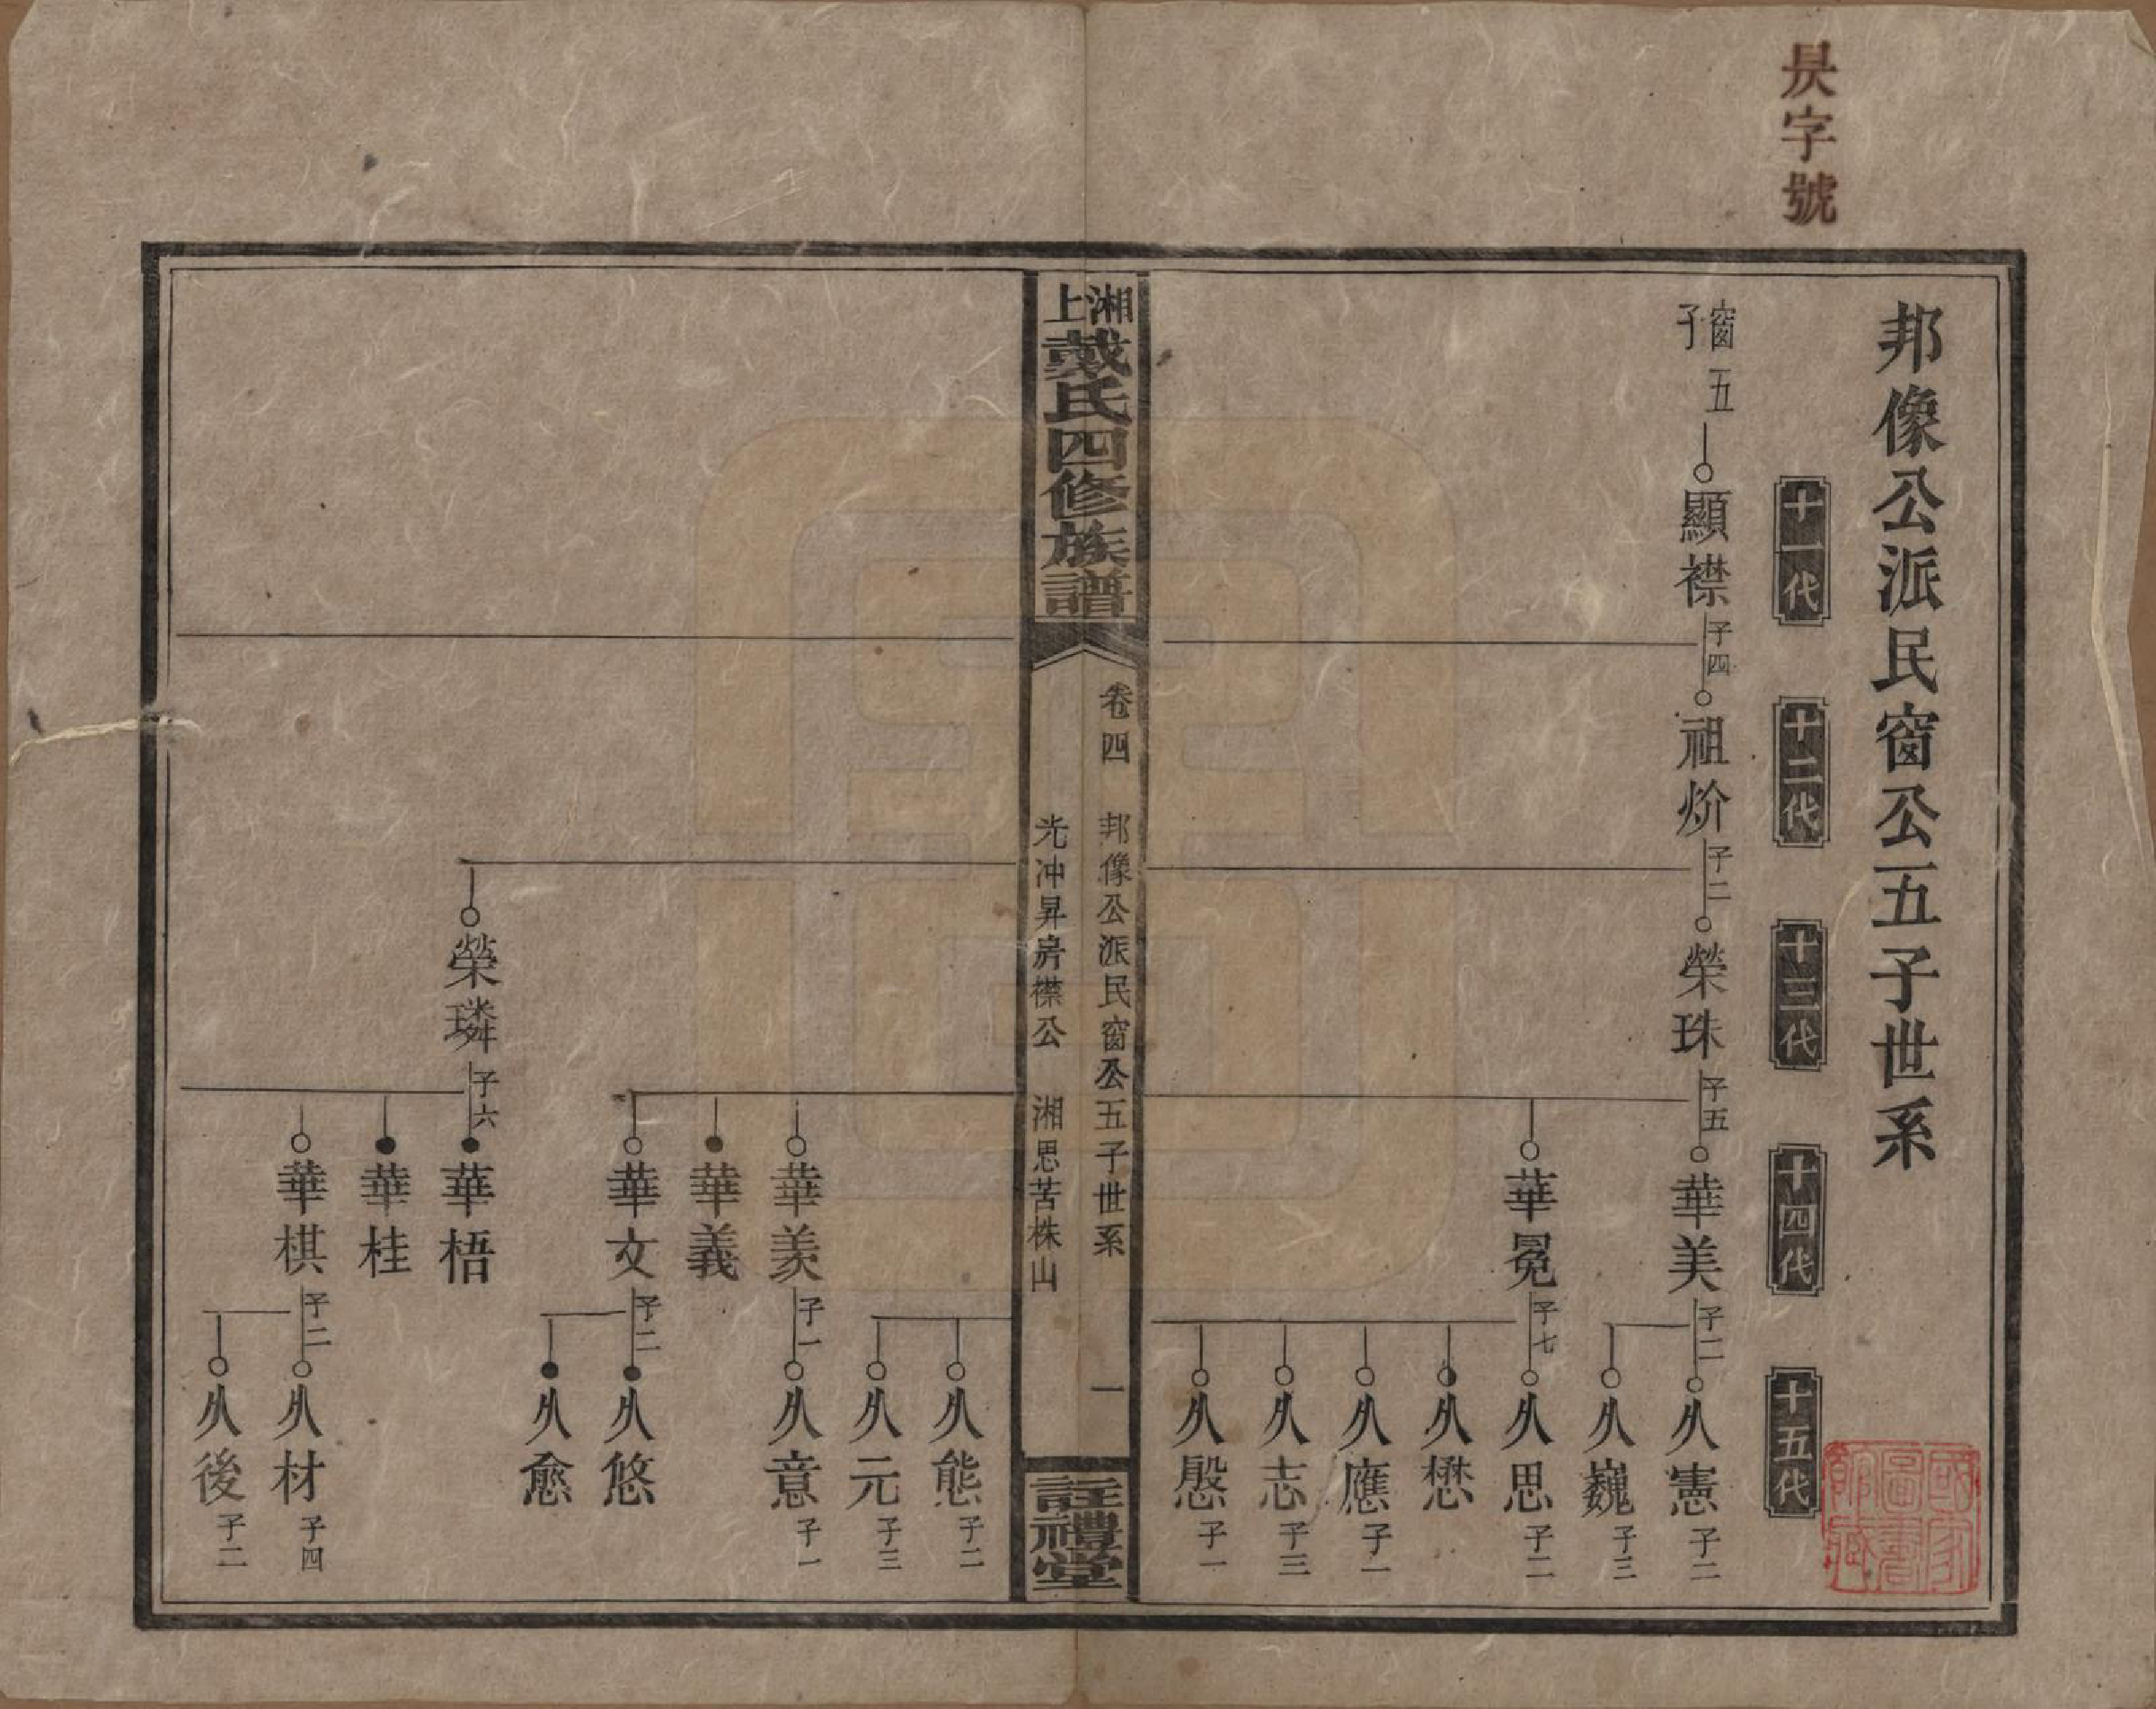 昃字號
邦像公派民窗公五子世系
十一代
十二代
十三代
十四代
十五代
窗五子
顯襟 子四
祖炌 子二
榮珠 子五
華美 子二
久憲 子二
久巍 子三
華冕 子七
久思 子二
久懋
久應 子一
久志 子三
久慇 子一
湘上戴氏四修族譜
卷四
邦像公派民窗公五子世系
一
光冲昇房襟公
湘思苦株山
註禮堂
久熊 子二
久元 子三
華羨 子一
久意 子一
華義
華文 子二
久悠
久愈
榮璘 子六
華梧
華桂
華棋 子二
久材 子四
久後 子二
國家圖書館藏